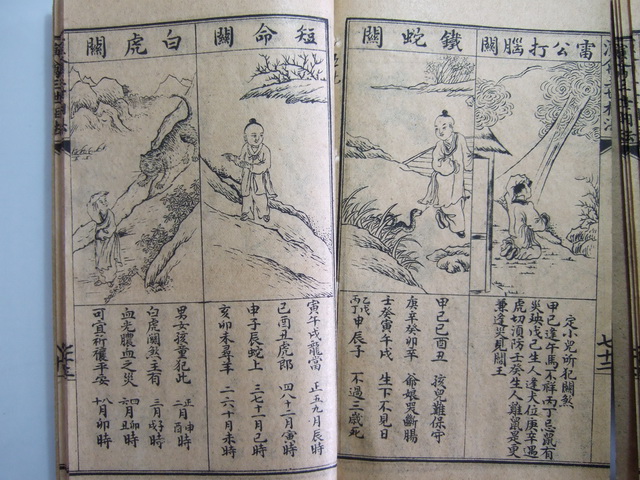 雷公打腦關
定小兒所犯關煞
甲己逢午馬不祥丙丁忌鼠有
災殃戊己生人逢犬位庚辛遇
虎切須防壬癸生人雞鼠是更
兼逢災見閻王
鐵蛇關
甲己巳酉丑 孩兒難保守
庚辛 卯辛 爺娘哭斷腸
壬癸寅午戌 生下不見日
丙丁申辰子 不過 歲死
短命關
寅午戌龍當 正五九月辰時
巳酉丑虎郎 四八十二月寅時
申子辰蛇上 三七十一月巳時
亥卯未尋羊 二六十月未時
白虎關
男女 重犯此 正月申 時
白虎關煞主有 三月 時
血光膿血之災 四 卯時
可宜祈禳平安 八月卯時
七十二